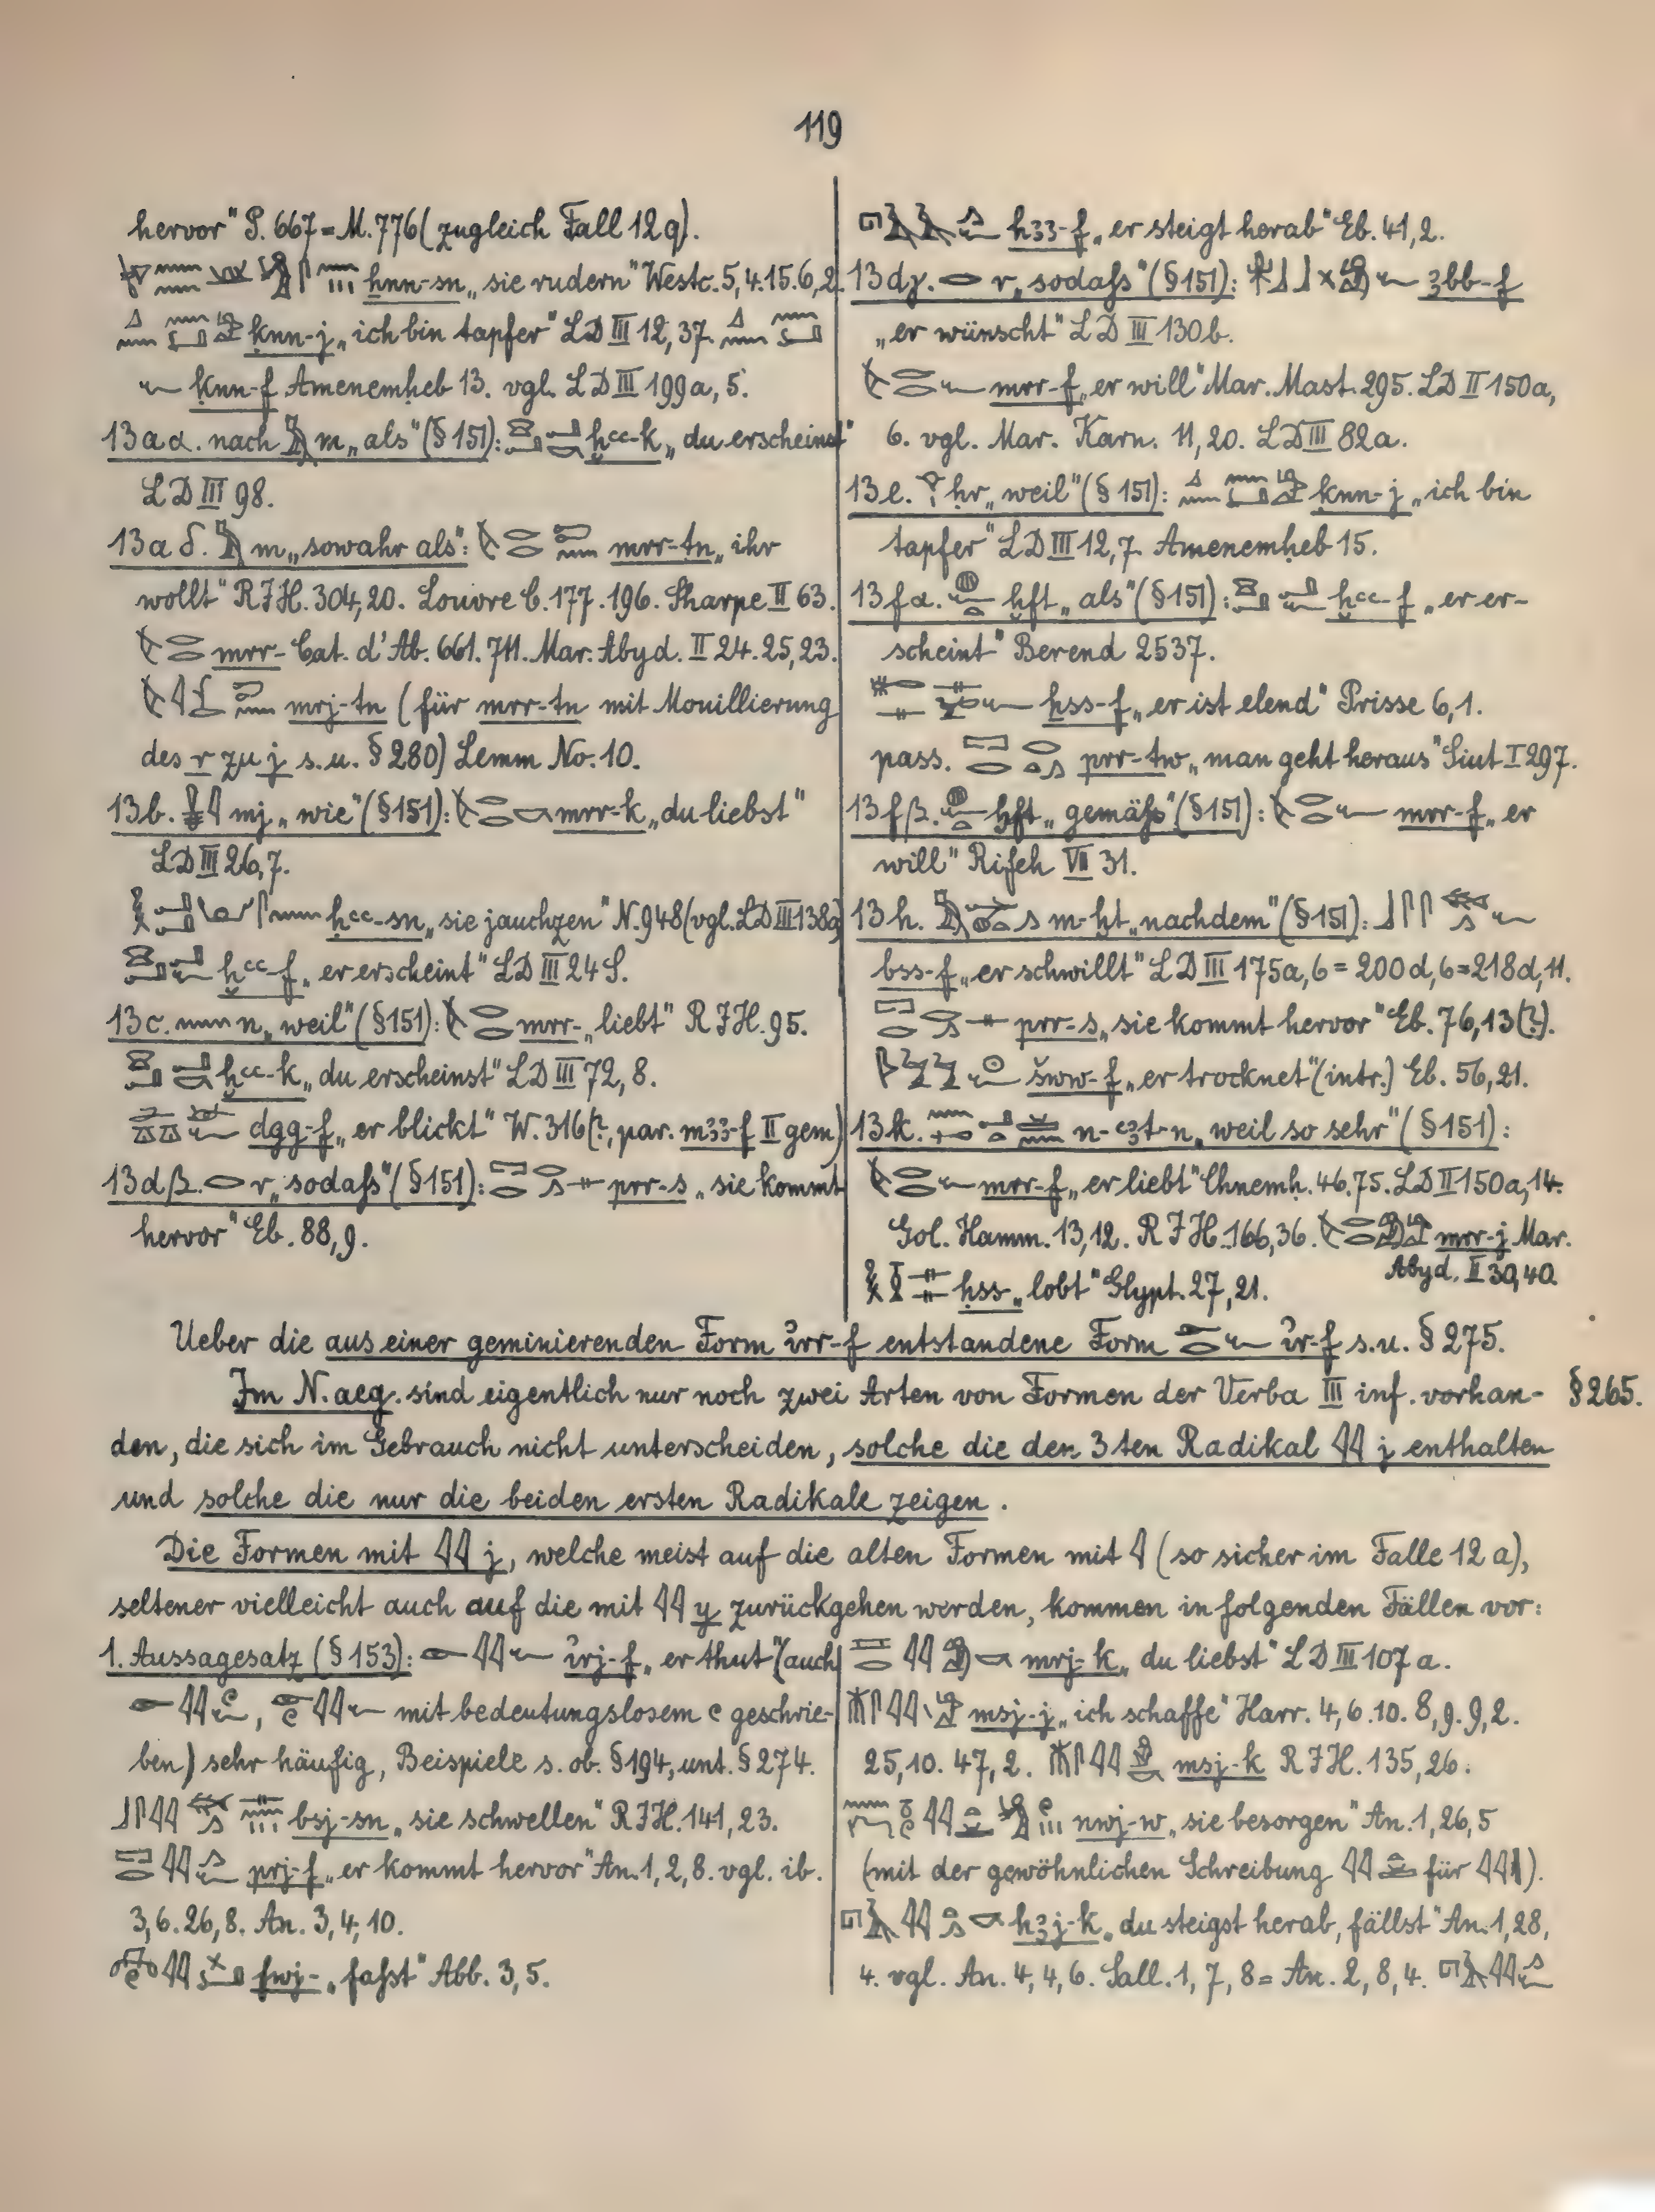 119
hervor" P. 667 = M. 776 (zugleich Fall 12 q).
ẖnn-sn „sie rudern" Westc. 5, 4. 15. 6, 2.
ḳnn-j „ich bin tapfer" LD III 12, 37.
ḳnn-f Amenemḥeb 13. vgl. LD III 199a, 5.
13 a α. nach m „als" (§ 151): ḫꜥꜥ-k „du erscheinst"
LD III 98.
13 a δ. m „sowahr als": mrr-tn „ihr
wollt" RJH. 304, 20. Louvre C. 177. 196. Sharpe II 63.
mrr- Cat. d'Ab. 661. 711. Mar. Abyd. II 24. 25, 23.
mrj-tn (für mrr-tn mit Mouillierung
des r zu j s. u. § 280) Lemm No. 10.
13 b. mj „wie" (§ 151): mrr-k „du liebst"
LD III 26, 7.
ḥꜥꜥ-sn „sie jauchzen" N. 948 (vgl. LD III 138g)
ḫꜥꜥ-f „er erscheint" LD III 24 S.
13 c. n „weil" (§ 151): mrr- „liebt" RJH. 95.
ḫꜥꜥ-k „du erscheinst" LD III 72, 8.
dgg-f „er blickt" W. 316 (?, par. mꜣꜣ-f II gem)
13 d β. r „sodaſs" (§ 151): prr-s „sie kommt
hervor" Eb. 88, 9.
hꜣꜣ-f „er steigt herab" Eb. 41, 2.
13 d γ. r „sodaſs" (§ 151): ꜣbb-f
„er wünscht" LD III 130 b.
mrr-f „er will" Mar. Mast. 295. LD II 150a,
6. vgl. Mar. Karn. 11, 20. LD III 82a.
13 e. ḥr „weil" (§ 151): ḳnn-j „ich bin
tapfer" LD III 12, 7. Amenemḥeb 15.
13 f α. ḫft „als" (§ 151): ḫꜥꜥ-f „er er-
scheint" Berend 2537.
ẖss-f „er ist elend" Prisse 6, 1.
pass. prr-tw „man geht heraus" Siut I 297.
13 f β. ḫft „gemäſs" (§ 151): mrr-f „er
will" Rifeh VII 31.
13 h. m-ḫt „nachdem" (§ 151):
bss-f „er schwillt" LD III 175a, 6 = 200 d, 6 = 218 d, 11.
prr-s „sie kommt hervor" Eb. 76, 13 (?).
šww-f „er trocknet" (intr.) Eb. 56, 21.
13 k. n-ꜥꜣt-n „weil so sehr" (§ 151):
mrr-f „er liebt" Chnemḥ. 46. 75. LD II 150a, 14.
Gol. Hamm. 13, 12. RJH. 166, 36. mrr-j Mar.
Abyd. II 30, 40.
ḥss- „lobt" Glypt. 27, 21.
Ueber die aus einer geminierenden Form ỉrr-f entstandene Form ỉr-f s. u. § 275.
Im N. aeg. sind eigentlich nur noch zwei Arten von Formen der Verba III inf. vorhan- § 265.
den, die sich im Gebrauch nicht unterscheiden, solche die den 3ten Radikal 𓇋𓇋 j enthalten
und solche die nur die beiden ersten Radikale zeigen.
Die Formen mit 𓇋𓇋 j, welche meist auf die alten Formen mit 𓇋 (so sicher im Falle 12 a),
seltener vielleicht auch auf die mit 𓇋𓇋 y zurückgehen werden, kommen in folgenden Fällen vor:
1. Aussagesatz (§ 153): ỉrj-f „er thut" (auch
mit bedeutungslosem 𓏲 geschrie-
ben) sehr häufig, Beispiele s. ob. § 194, unt. § 274.
bsj-sn „sie schwellen" RJH. 141, 23.
prj-f „er kommt hervor" An. 1, 2, 8. vgl. ib.
3, 6. 26, 8. An. 3, 4, 10.
fwj- „faſst" Abb. 3, 5.
mrj-k „du liebst" LD III 107 a.
msj-j „ich schaffe" Harr. 4, 6. 10. 8, 9. 9, 2.
25, 10. 47, 2. msj-k RJH. 135, 26.
nwj-w „sie besorgen" An. 1, 26, 5
(mit der gewöhnlichen Schreibung für).
hꜣj-k „du steigst herab, fällst" An. 1, 28,
4. vgl. An. 4, 4, 6. Sall. 1, 7, 8 = An. 2, 8, 4.